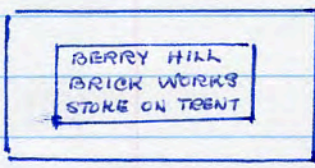 BERRY HILL
BRICK WORKS
STOKE ON TRENT